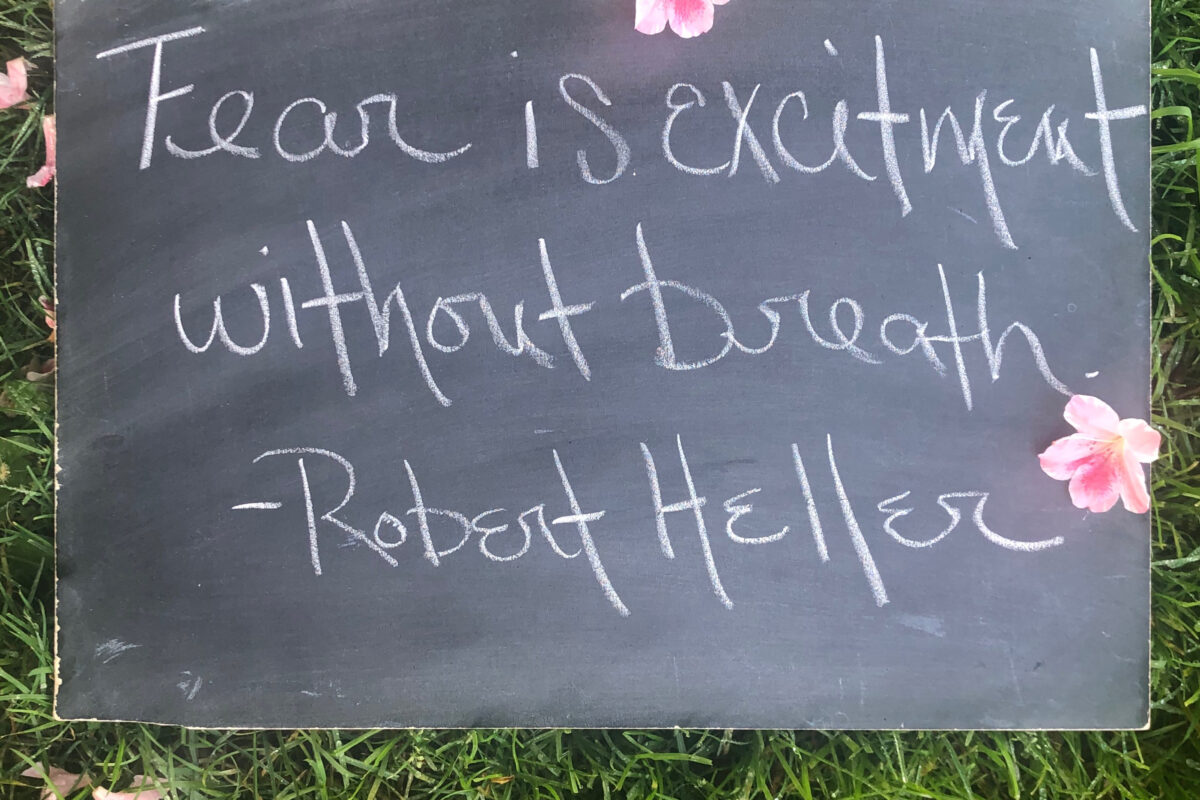 Fear is excitment
without breath.
- Robert Heller